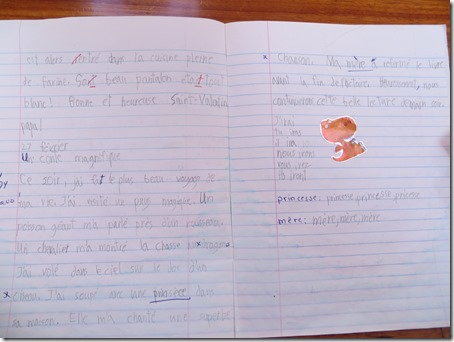 est alors rentré dans la cuisine pleine
de farine. Son beau pantalon était tout
blanc! Bonne et heureuse Saint-Valentin
papa!
27 février
Une école magnifique
Ce soir, j'ai fait le plus beau voyage de
ma vie. J'ai visité un pays magique. Un
poisson géant m'a parlé près d'une
Un m'a montré la chasse aux dragons
J'ai volé dans le ciel sur le dos d'un
oiseau. J'ai soupé avec une dans
sa maison. Elle m'a chanté une superbe
chanson. Ma mère a refermé le livre
avant la fin de l'histoire. Heureusement, nous
continuerons cette belle lecture demain soir.
J'irai
tu iras
il ira
nous irons
vous irez
ils iront
princesse: princesse, princesse, princesse
mère: mère, mère, mère